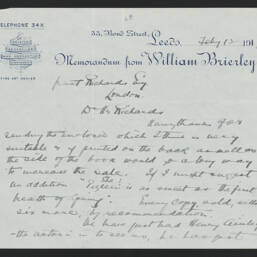 TELEPHONE 34X
33, Bond Street,
Leeds, Feby 191
Memorandum from William Brierley
FINE ART DEALER
Grant Richards Esq
London
Dr Mr Richards
Many thanks for
sending the enclosed which I think is very
suitable & if printed on the back as well as
the side of the book would be a big way
to increase the sale. If I might suggest
an addition "The" is as sweet as the first
breath of Spring". Every copy sold, sells
six more, by recommendation.
We have just had Henry Ainley
- the actor - in to see us, he has just